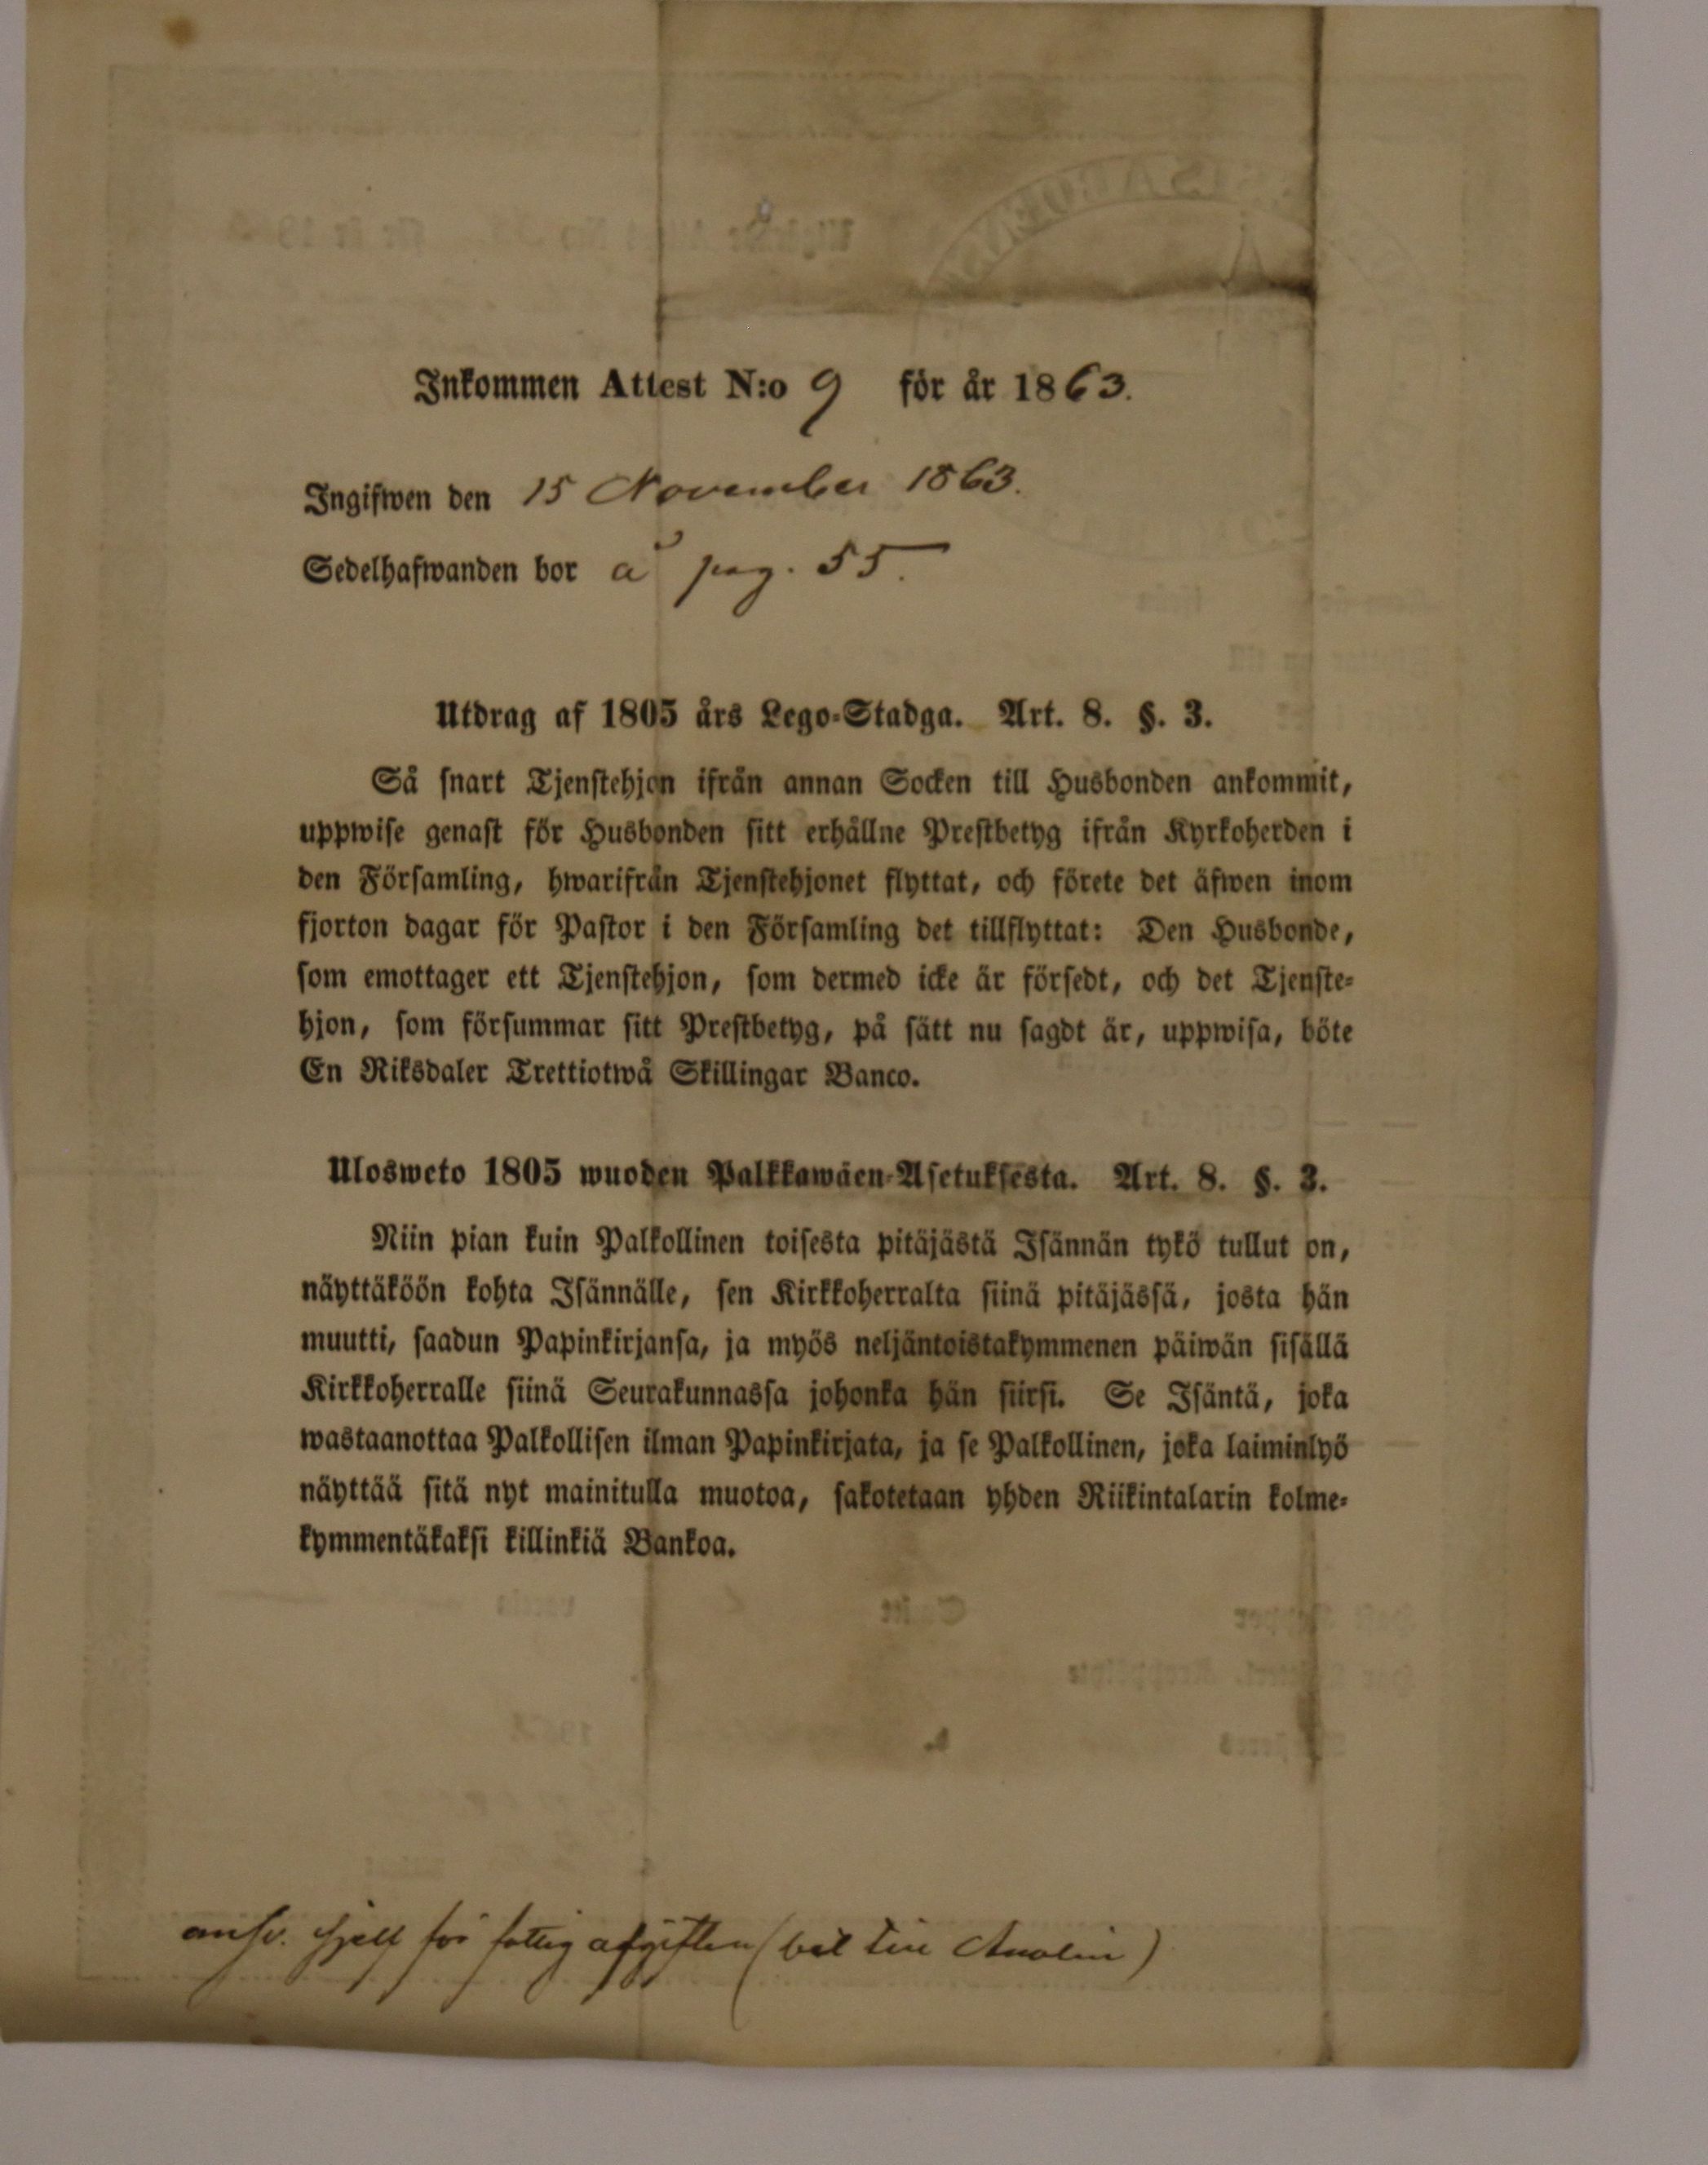 Inkommen Attest N:o 9 för år 1863.
Ingifwen den 15 November 1863.
Sedelhafwanden bor å pag. 55.
Utdrag af 1805 års Lego-Stadga. Art. 8. §. 3.
Så snart Tjenstehjon ifrån annan Socken till Husbonden ankommit,
uppwise genast för Husbonden sitt erhållne Prestbetyg ifrån Kyrkoherden i
den Församling, hwarifrån Tjenstehjonet flyttat, och förete det äfwen inom
fjorton dagar för Pastor i den Församling det tillflyttat: Den Husbonde,
som emottager ett Tjenstehjon, som dermed icke är försedt, och det Tjenste-
hjon, som försummar sitt Prestbetyg, på sätt nu sagdt är, uppwisa, böte
En Riksdaler Trettiotwå Skillingar Banco.
Ulosweto 1805 wuoden Palkkawäen-Asetuksesta. Art. 8. §. 3.
Niin pian kuin Palkollinen toisesta pitäjästä Isännän tykö tullut on,
näyttäköön kohta Isännälle, sen Kirkkoherralta siinä pitäjässä, josta hän
muutti, saadun Papinkirjansa, ja myös neljäntoistakymmenen päiwän sisällä
Kirkkoherralle siinä Seurakunnassa johonka hän siirsi. Se Isäntä, joka
wastaanottaa Palkollisen ilman Papinkirjata, ja se Palkollinen, joka laiminlyö
näyttää sitä nyt mainitulla muotoa, sakotetaan yhden Riikintalarin kolme-
kymmentäkaksi killinkiä Bankoa.
ansv. sjelf för fattig afgiften